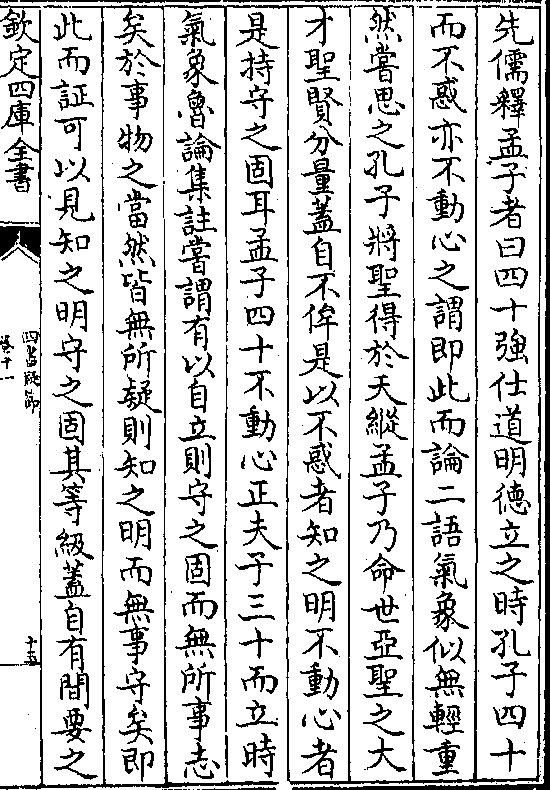 先儒釋孟子者曰四十強仕道明德立之時孔子四十
而不惑亦不動心之謂即此而論二語氣象似無輕重
然嘗思之孔子將聖得於天縱孟子乃命世亞聖之大
才聖賢分量蓋自不侔是以不惑者知之明不動心者
是持守之固耳孟子四十不動心正夫子三十而立時
氣象魯論集註嘗謂有以自立則守之固而無所事志
矣於事物之當然皆無所疑則知之明而無事守矣即
此而証可以見知之明守之固其等級蓋自有間要之
欽定四庫全書
四書疑節
卷十一
十五